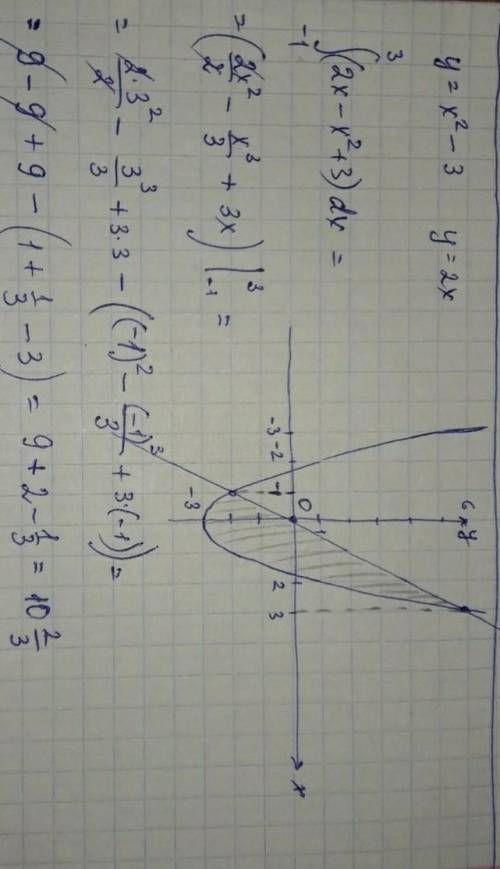 y = x² - 3   y = 2x
∫₋₁³ (2x - x² + 3) dx =
= (2x²/2 - x³/3 + 3x) |₋₁³ =
= 2·3²/2 - 3³/3 + 3·3 - ((-1)² - (-1)³/3 + 3·(-1)) =
= 9 - 9 + 9 - (1 + 1/3 - 3) = 9 + 2 - 1/3 = 10 2/3
6 y
-3 -2 -1 0 1 2 3 x
-3